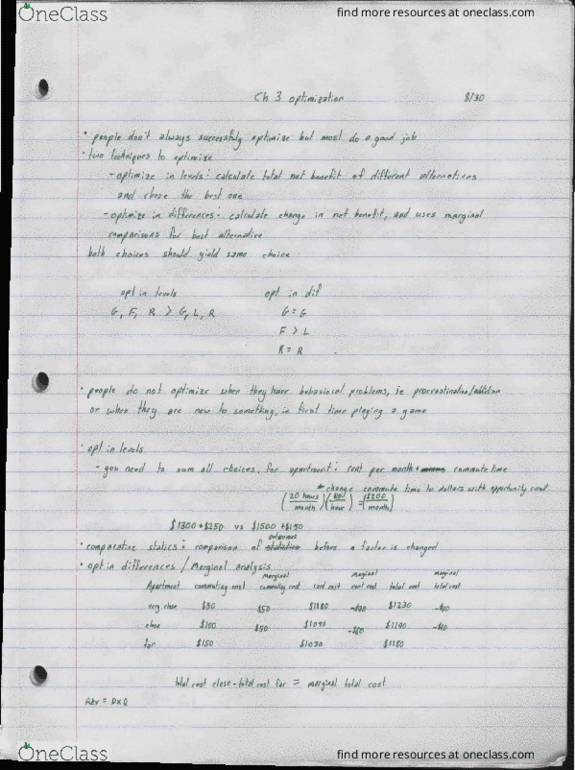 OneClass
find more resources at oneclass.com
Ch 3 optimization 8/30
• people don't always successfuly optimize but most do a good job
• two techniques to optimize
- optimize in levels: calculate total net benefit of different alternatives
and chose the best one
- optimize in differences: calculate change in net benefit, and uses marginal
comparisons for best alternative
both choices should yield same choice
opt in levels opt in dif
G, F, R > G, L, R G = G
F > L
R = R
• people do not optimize when they have behavioral problems, ie procrastination/addiction
or when they are new to something, ie first time playing a game
• opt in levels
- you need to sum all choices, for apartment: rent per month + commute time
change commute time to dollars with opportunity cost
(20 hours/month) ($10/hour) = ($200/month)
$1300 + $250 vs $1500 + $150
• comparative statics: comparison of outcomes before a factor is changed
• opt in differences / Marginal analysis
Apartment commuting cost marginal commuting cost rent cost marginal rent cost total cost marginal total cost
very close $50 $1180 $1230
close $50 $100 $1090 $1190
far $150 $1030 $1180
total cost close - total cost far = marginal total cost
Rev = P x Q
OneClass
find more resources at oneclass.com